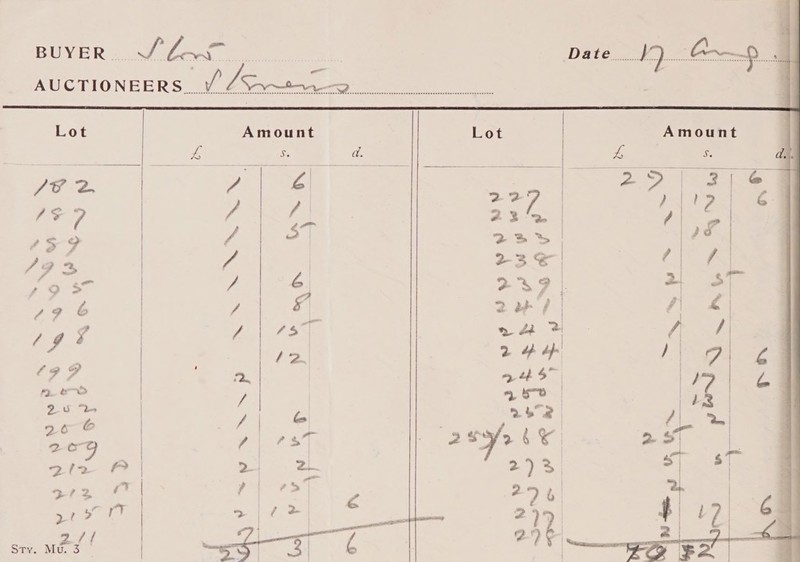 BUYER Slow Date 17 Aug.
AUCTIONEERS
Lot Amount Lot Amount
£ s. d. £ s. d.
182 1 6
187 1 1
189 1 5
193 1
195 1 6
196 1 8
198 1 15
199 12
200 2
202 1
206 1 6
209 1 15
212 A 2 2
213 A 1 15
215 A 2 12 6
211 7
29 3 6
STY. MU. 3
29 3 6
227 1 17 6
232 1
233 18
238 1 1
239 2 5
241 1 6
242 1 1
244 1 7 6
245 17 6
250 13
253 1 2
259/268 25
273 5 5
276 2
277 1 17 6
278 2 7 6
79 2